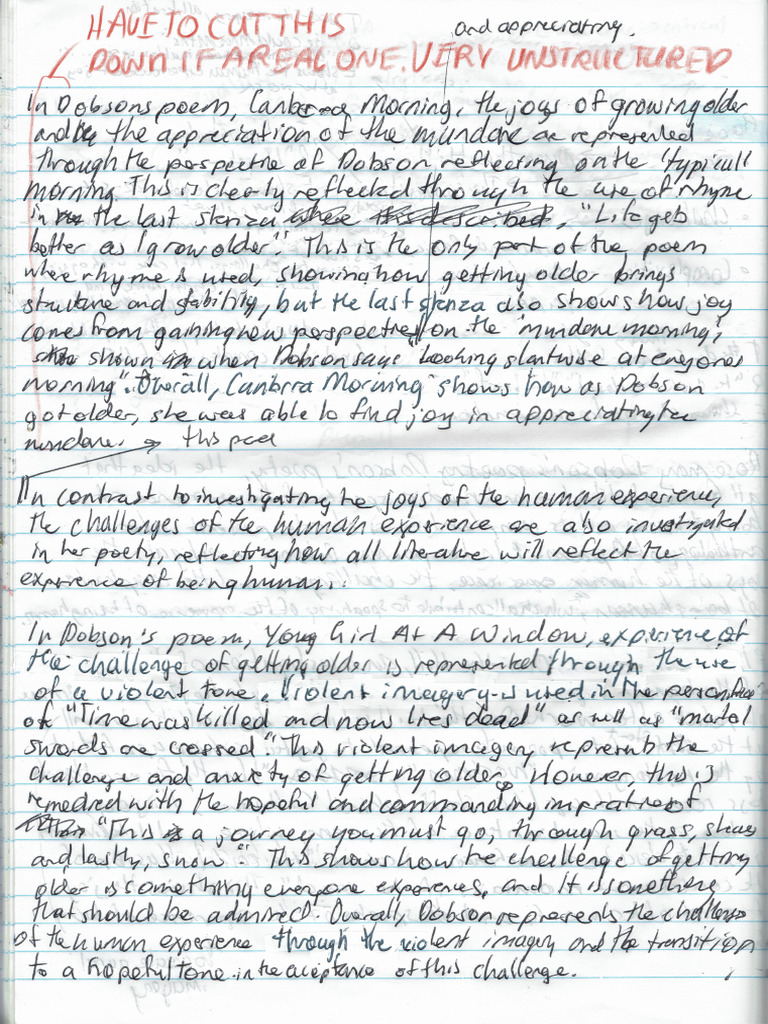 HAVE TO CUT THIS
and appreciating.
DOWN IF A REAL ONE. VERY UNSTRUCTURED
In Dobsons poem, Canberra Morning, the joys of growing older
and the appreciation of the mundane are represented
through the perspective of Dobson reflecting on the 'typicall
morning. This is clearly reflected through the use of rhyme
in the last stanza, "Life gets
better as I grow older". This is the only part of the poem
where rhyme is used, showing how getting older brings
structure and stability, but the last stanza also shows how joy
comes from gaining new perspectives on the 'mundane morning',
shown when Dobson says "Looking slantwise at everyone's
morning". Overall, Canberra Morning shows how as Dobson
got older, she was able to find joy in appreciating the
mundane. → this poem
In contrast to investigating the joys of the human experience,
the challenges of the human experience are also investigated
in her poetry, reflecting how all literature will reflect the
experience of being human.
In Dobson's poem, Young Girl At A Window, experience of
the challenge of getting older is represented through the use
of a violent tone. Violent imagery is used in the
of "Time was killed and now lies dead" as well as "mortal
swords are crossed". This violent imagery represents the
challenge and anxiety of getting older. However, this is
remedied with the hopeful and commanding imperatives of
"This is a journey you must go, through grass, sheaves
and, lastly, snow". This shows how the challenge of getting
older is something everyone experiences, and it is something
that should be admired. Overall, Dobson represents the challenges
of the human experience through the violent imagery and the transition
to a hopeful tone in the acceptance of this challenge.